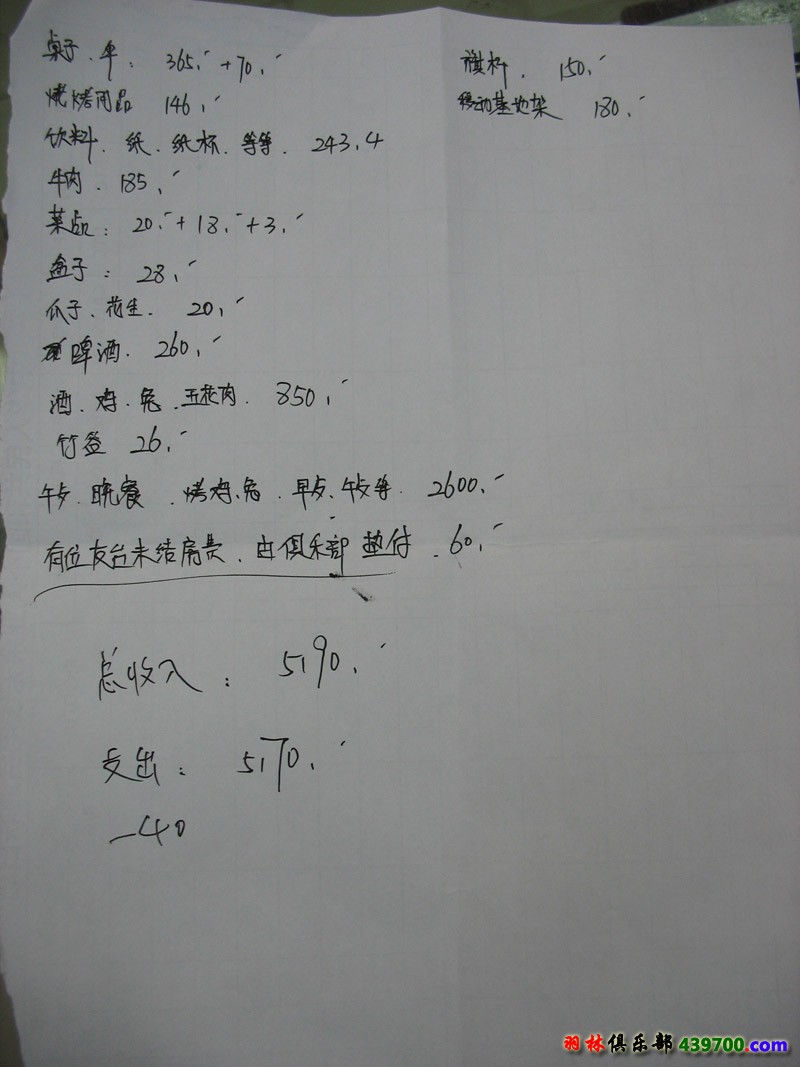 桌子、伞: 365.- + 70.-
烧烤用品 146.-
饮料、纸、纸杯、等等. 243.4
牛肉. 185.-
菜点: 20.- + 18.- + 3.-
盒子: 28.-
瓜子、花生. 20.-
啤酒. 260.-
酒、鸡、兔、五花肉. 850.-
竹签 26.-
午歺、晚餐、烤鸡、兔、早歺、午歺等. 2600.-
有位友台未结房费、由俱乐部垫付. 60.-
旗杆. 150.-
移动基地架 180.-
总收入: 5190.-
支出: 5170.-
-40
羽林俱乐部439700.com